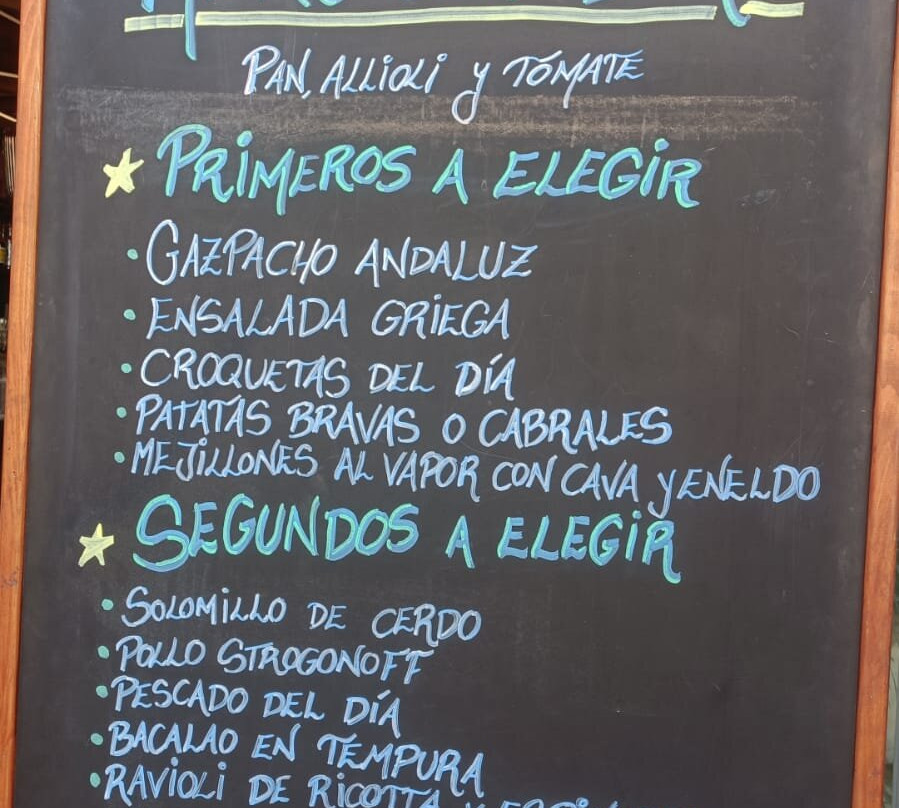 PAN, ALLIOLI y TOMATE
PRiMEROS A ELEGiR
GAZPACHO ANDALUZ
ENSALADA GRiEGA
CROQUETAS DEL DÍA
PATATAS BRAVAS O CABRALES
MEJiLLONES AL VAPOR CON CAVA y ENELDO
SEGUNDOS A ELEGiR
SOLOMiLLO DE CERDO
POLLO STROGONOFF
PESCADO DEL DÍA
BACALAO EN TEMPURA
RAViOLi DE RiCOTTA y